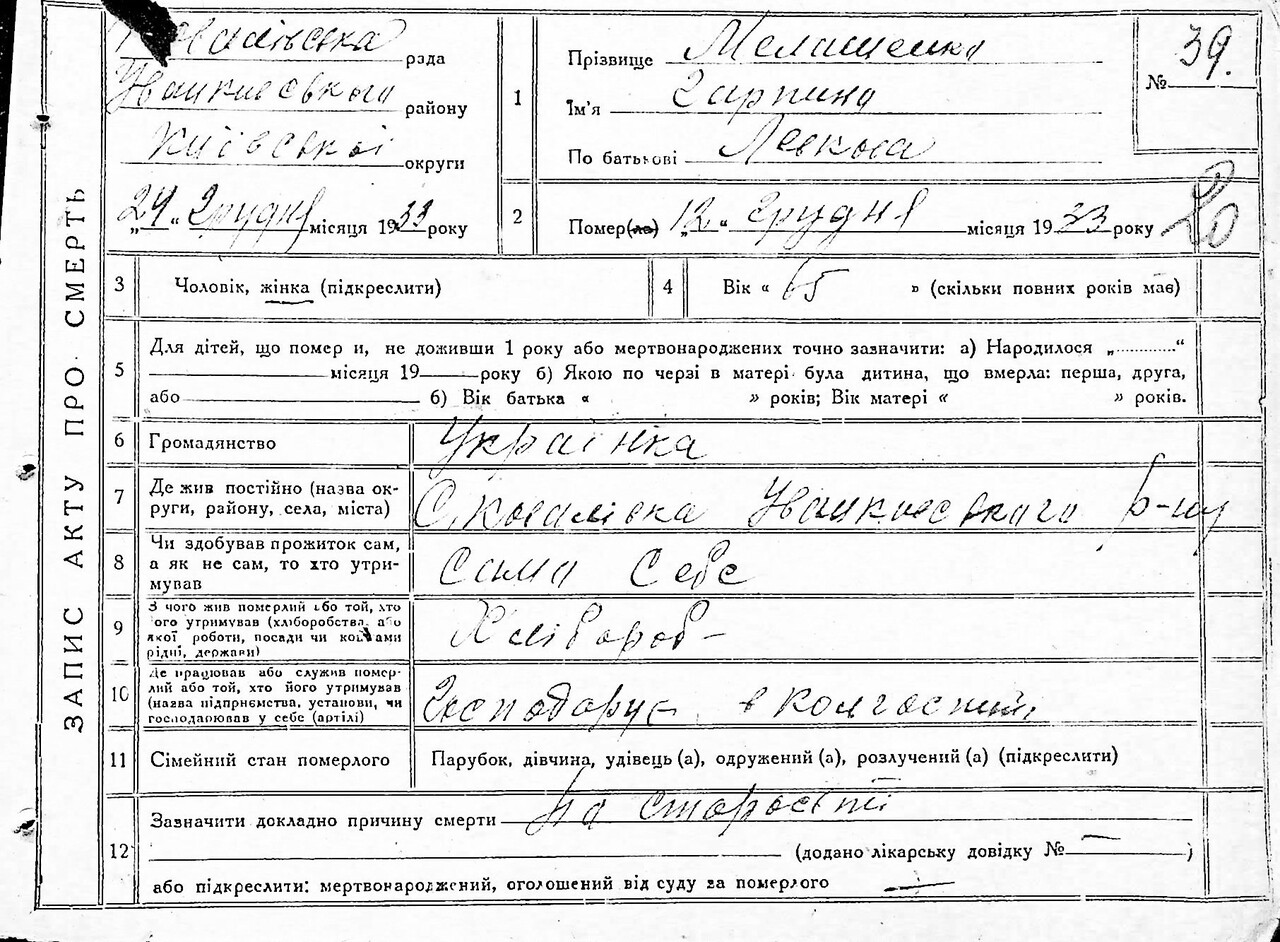 ЗАПИС АКТУ ПРО СМЕРТЬ
рада
району
Київської округи
„24“ Грудня місяця 1933 року
1
Прізвище Мелащенко
Ім'я Гарпина
По батькові Левкова
№ 39.
2
Помер(ла) „12“ Грудня місяця 1933 року
20
3
Чоловік, жінка (підкреслити)
4
Вік « 65 » (скільки повних років має)
5
Для дітей, що помер и, не доживши 1 року або мертвонароджених точно зазначити: а) Народилося „............“
місяця 19 року б) Якою по черзі в матері була дитина, що вмерла: перша, друга,
або б) Вік батька « » років; Вік матері « » років.
6
Громадянство
Українка
7
Де жив постійно (назва ок-
руги, району, села, міста)
С. р-ну
8
Чи здобував прожиток сам,
а як не сам, то хто утри-
мував
Сама Себе
9
З чого жив померлий або той, хто
його утримував (хліборобства, або
якої роботи, посади чи коштами
рідні, держави)
Хлібороб-
10
Де працював або служив помер-
лий або той, хто його утримував
(назва підприємства, установи, чи
господарював у себе (артілі)
Господарує в
11
Сімейний стан померлого
Парубок, дівчина, удівець (а), одружений (а), розлучений (а) (підкреслити)
12
Зазначити докладно причину смерти По старости
(додано лікарську довідку № — )
або підкреслити: мертвонароджений, оголошений від суду за померлого —